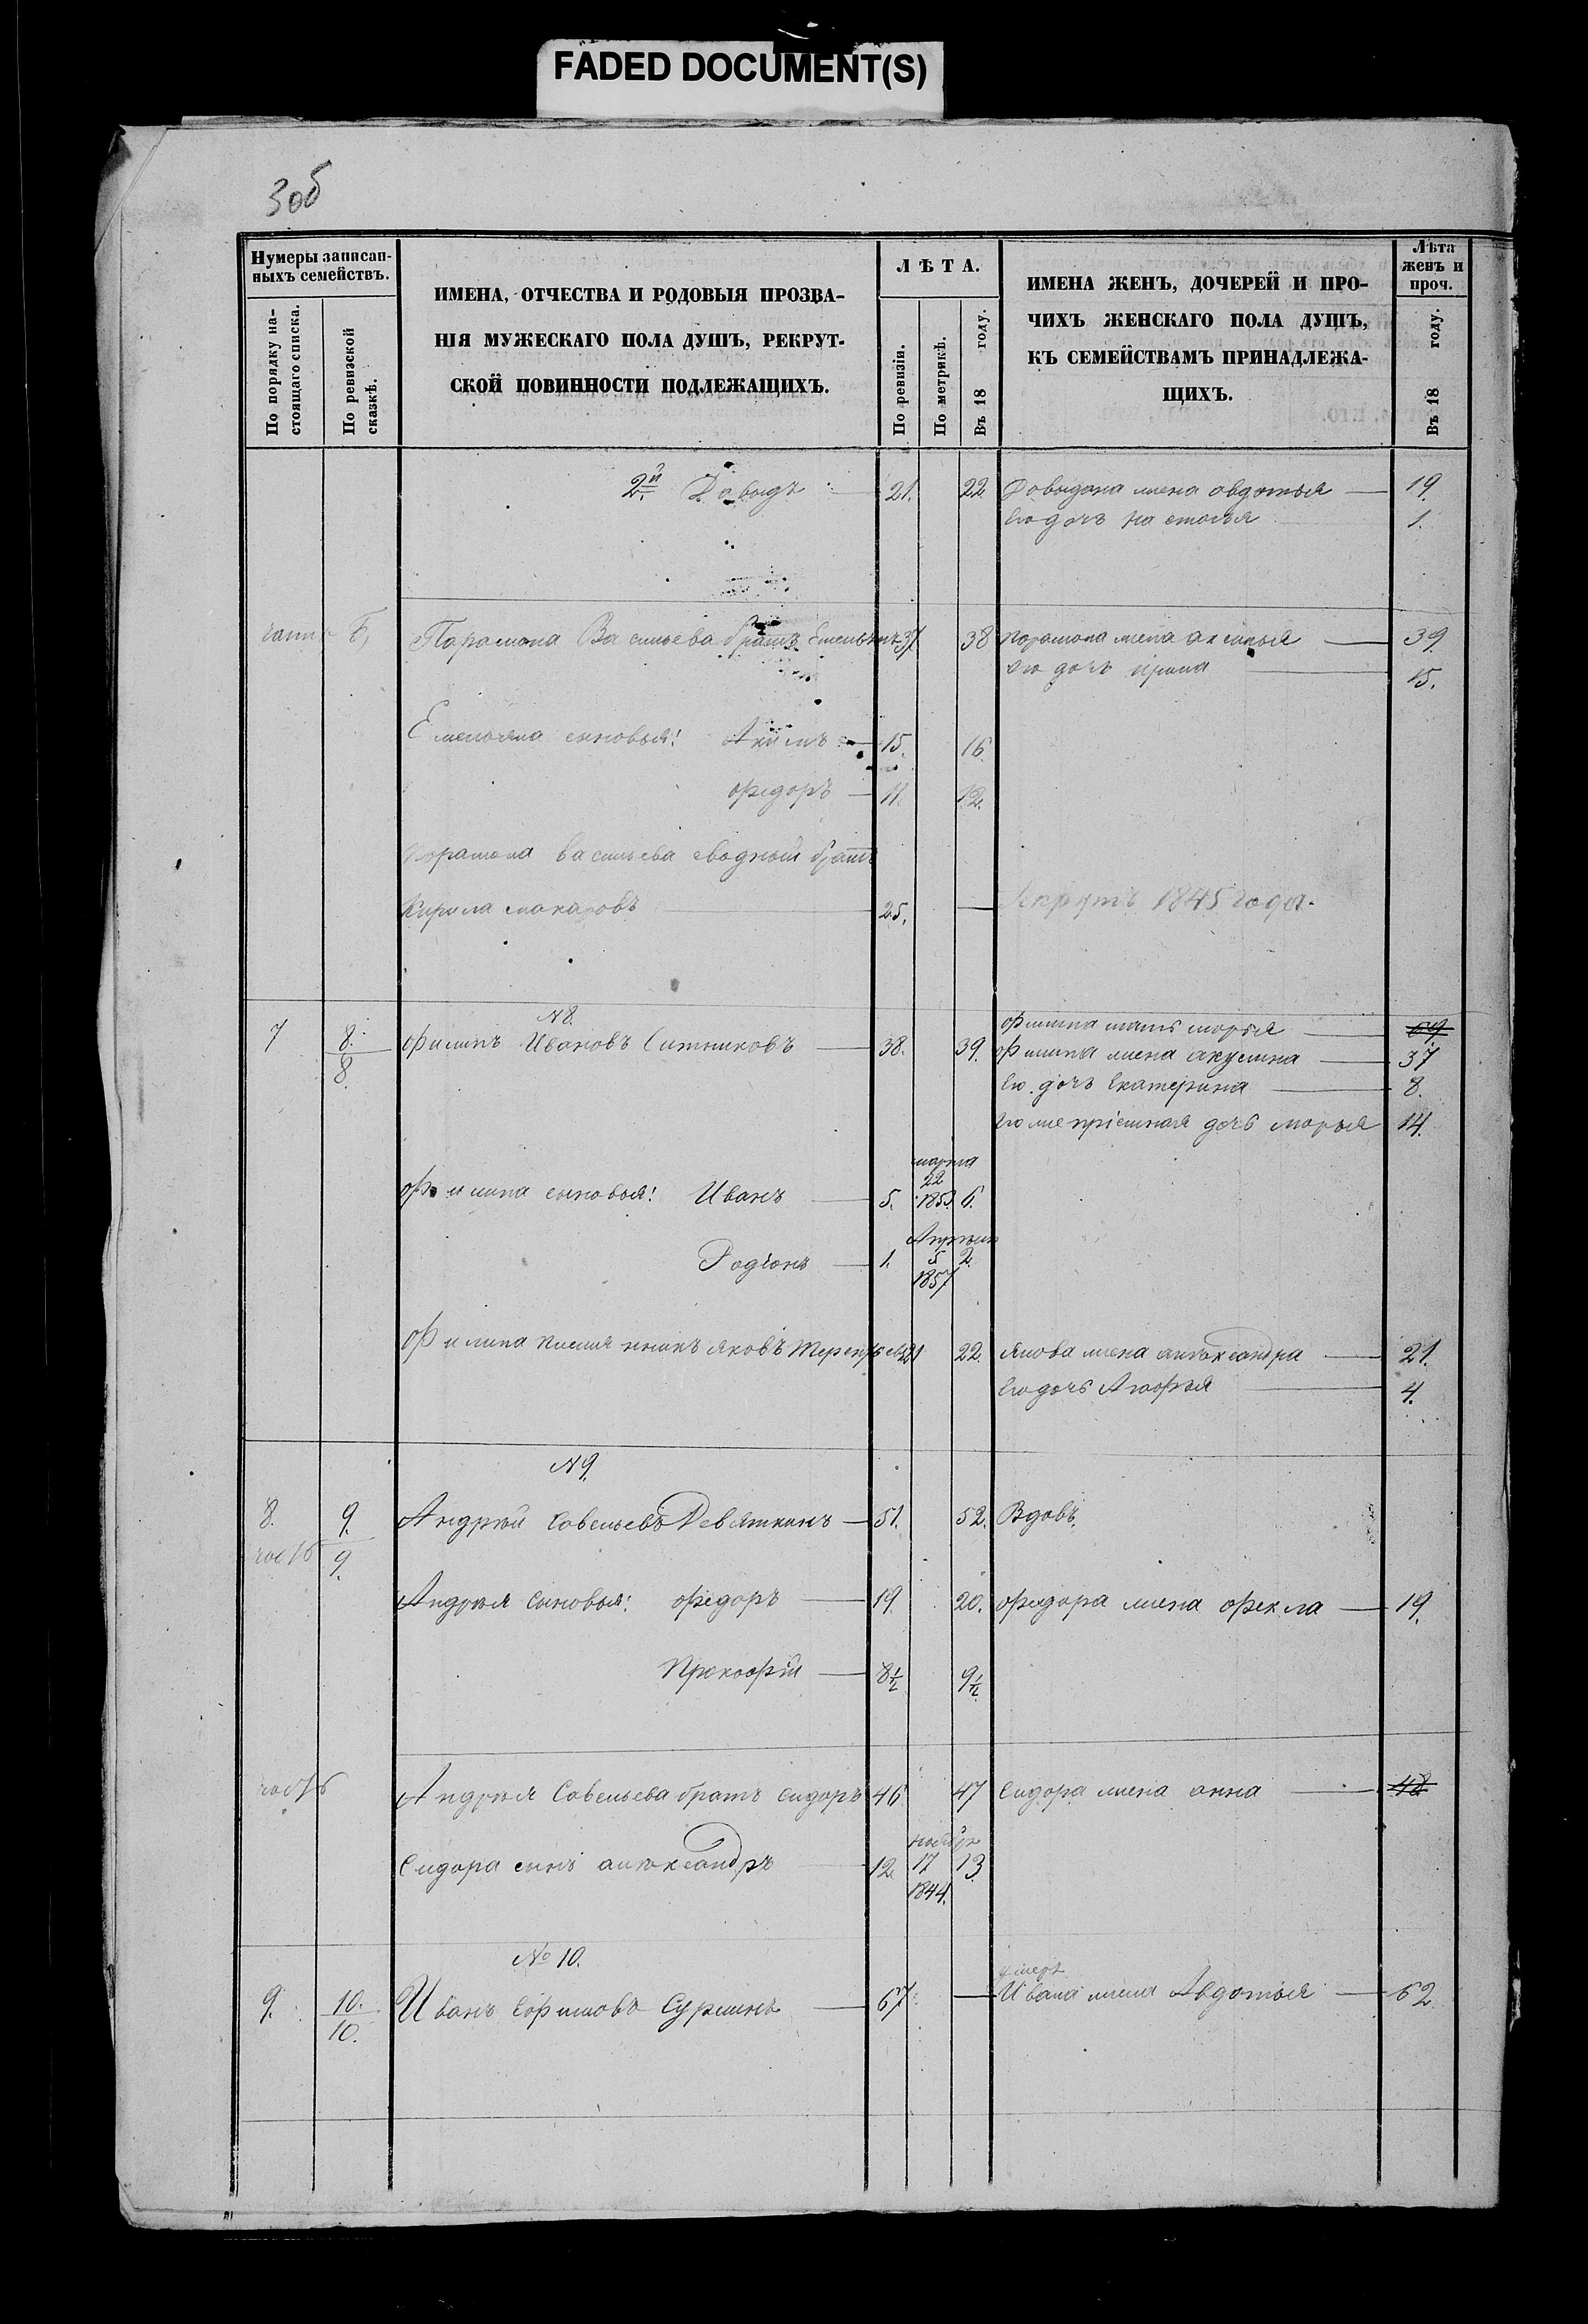 FADED DOCUMENT(S)
3об
Нумеры записан-
ныхъ семействъ.
По порядку на-
стоящаго списка.
По ревизской
сказкѣ.
ИМЕНА, ОТЧЕСТВА И РОДОВЫЯ ПРОЗВА-
НІЯ МУЖЕСКАГО ПОЛА ДУШЪ, РЕКРУТ-
СКОЙ ПОВИННОСТИ ПОДЛЕЖАЩИХЪ.
ЛѢТА.
По ревизіи.
По метрикѣ.
Въ 18 году.
ИМЕНА ЖЕНЪ, ДОЧЕРЕЙ И ПРО-
ЧИХЪ ЖЕНСКАГО ПОЛА ДУШЪ,
КЪ СЕМЕЙСТВАМЪ ПРИНАДЛЕЖА-
ЩИХЪ.
Лѣта
женъ и
проч.
Въ 18 году.
2й Давыдъ 21. 22 Давыдана жена авдотья 19.
Его дочь Настасья 1.
Парамона Васильева братъ Емельянъ 37 38 Парамона жена аксинья 39
Его дочь ирина 15.
Емельяна сыновья: Акимъ 15. 16.
Федоръ 11. 12.
Парамона Васильева сводный братъ
Кирила макаровъ 25. — Рекрутъ 1845 года.
N 8.
7 8. Филипъ Ивановъ Ситниковъ 38. 39. Филипа мать марья 59.
8. Филипа жена акулина 37
Его дочь Екатерина 8.
Его же пріемная дочь марья 14.
марта
22
Филипа сыновья: Иванъ 5. 1853 6.
Родіонъ 1. 5 2.
1857
Филипа племянникъ яковъ Терентьевъ 21 22. якова жена александра 21.
Его дочь 4.
N 9.
8. 9. Андрей Савельевъ Девяткинъ 51. 52. Вдовъ.
часть 9.
Андрея Сыновья: Федоръ 19. 20. Федора жена Фекла 19.
Прокофій 8½ 9½
часть Андрея Савельева братъ Сидоръ 46 47 Сидора жена анна 48
Ноября
Сидора сынъ александръ 12. 17 13.
1844.
№ 10.
умеръ
9. 10. Иванъ Ефимовъ Суринъ 67. — Ивана жена Авдотья 62.
10.